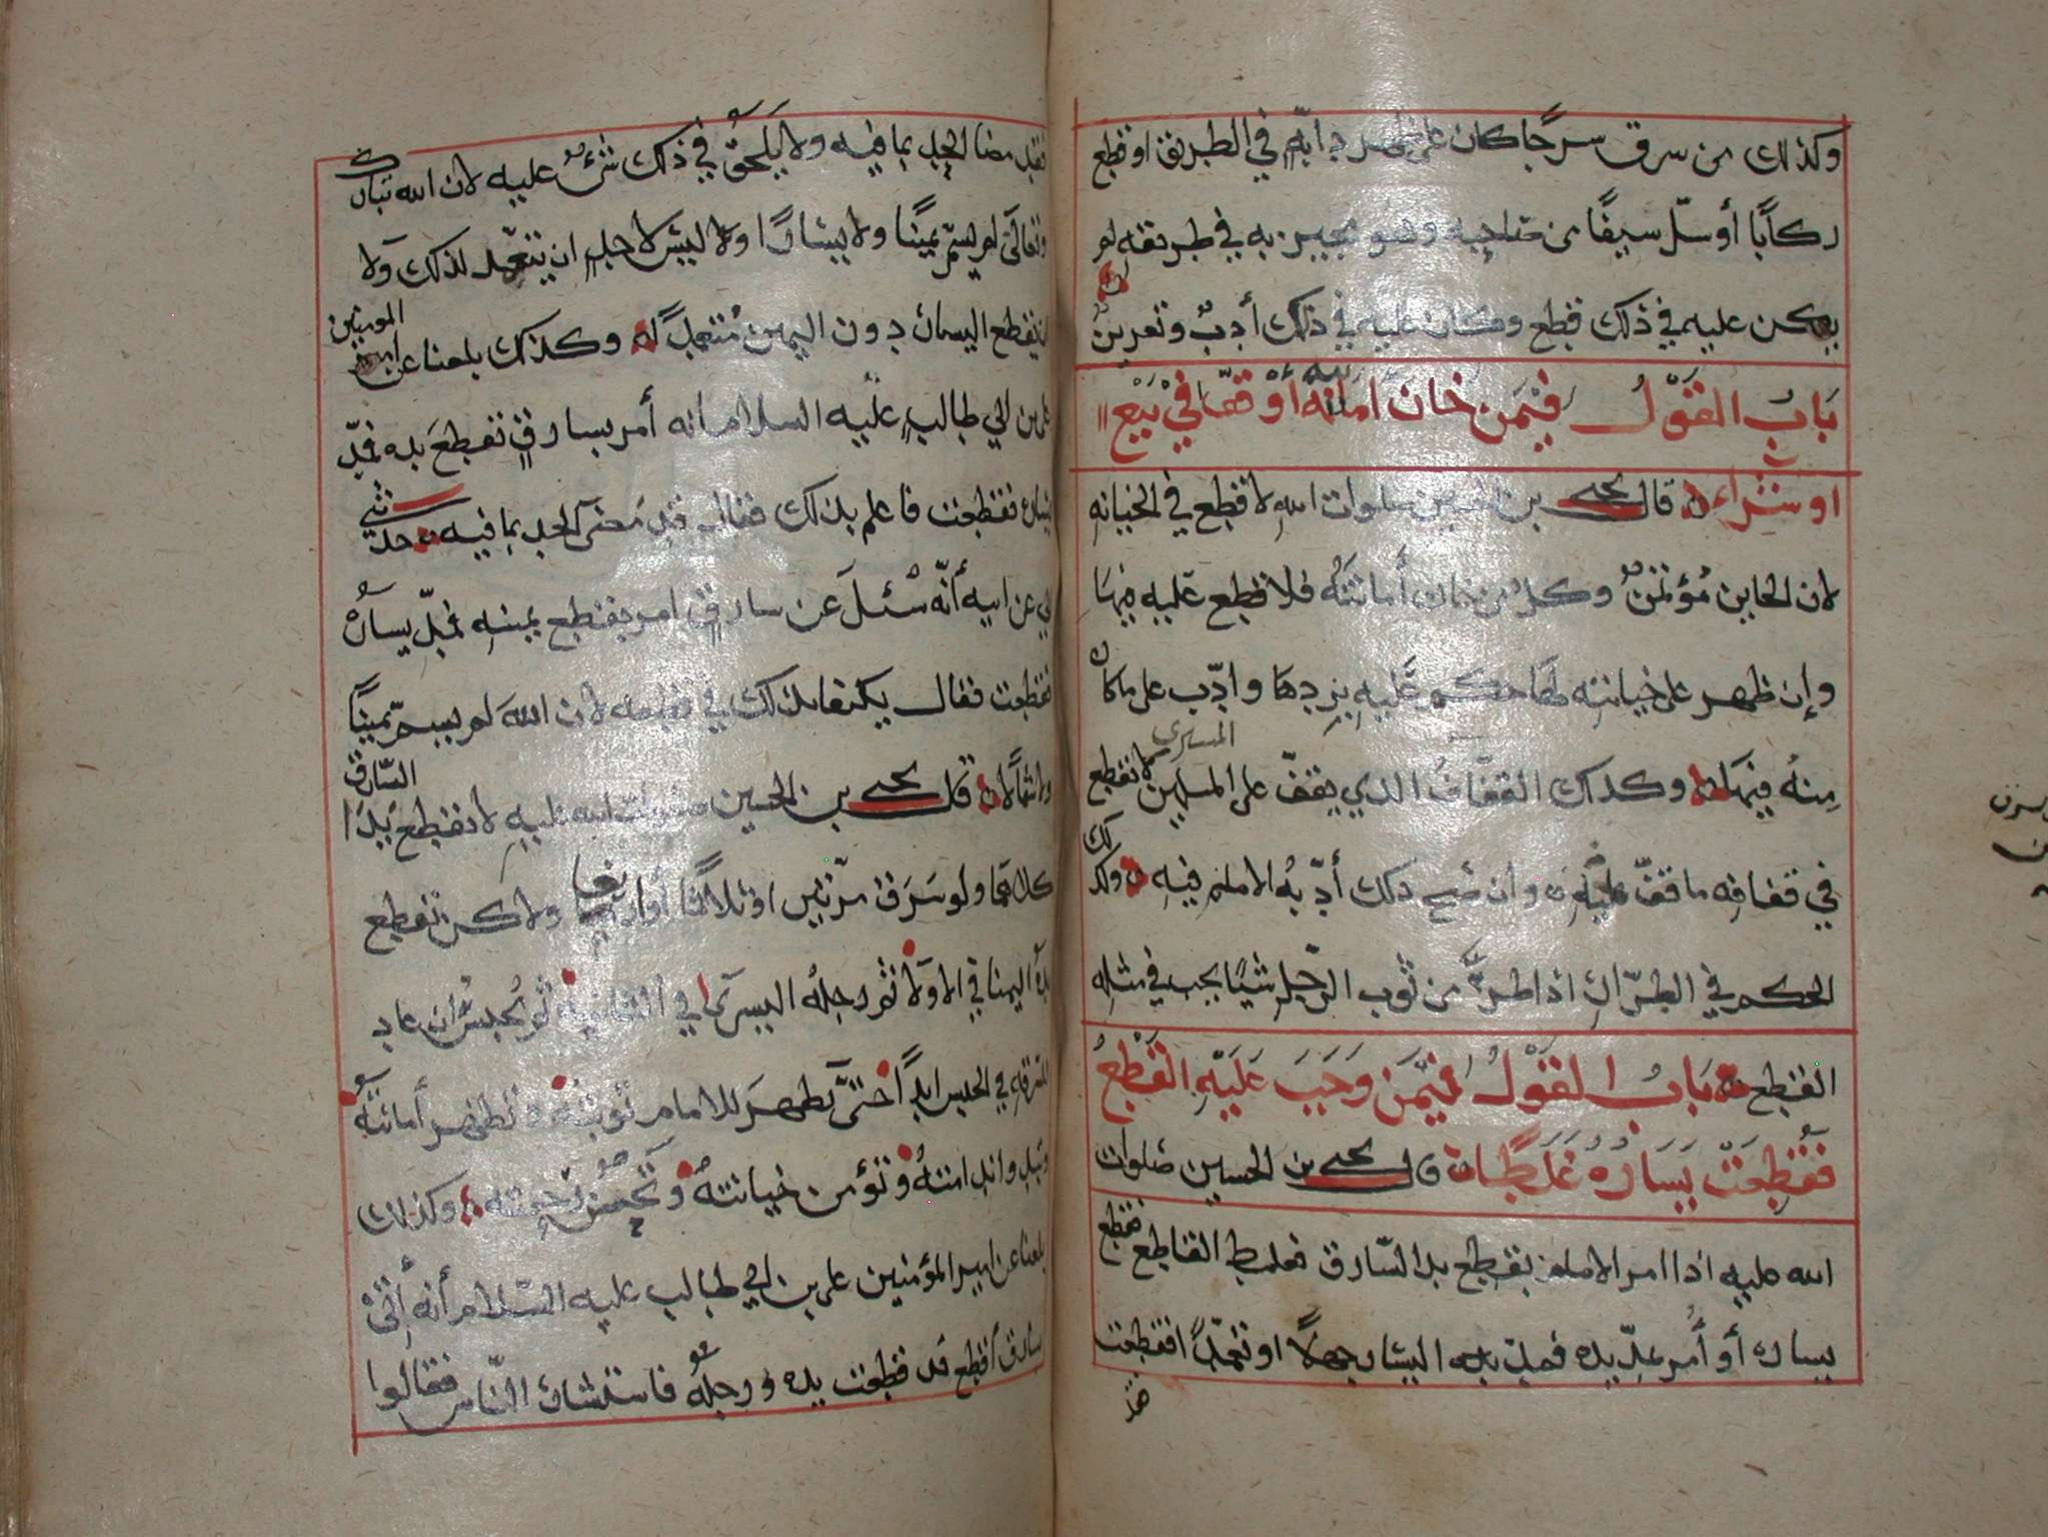 وكذلك من سرق سرجا كان على ظهر دابة في الطريق او قطع
ركابا أو سل سيفا من صاحبه وهو يسير به في طريقه لم
يكن عليه في ذلك قطع وكان عليه في ذلك أدب وتعزير
باب القول فيمن خان امانة أو قفا في بيع
او شراء قال يحيى بن الحسين صلوات الله لا قطع في الخيانه
لان الخاين مؤتمن وكل من خان أمانته فلا قطع عليه فيها
وإن ظهر على خيانته لها حكم عليه بردها وادب على ماكان
منه فيها وكذلك القفاف الذي يقف على المسلمين لا تقطع
المسترى
في قفافه ما قف عليه وان صح ذلك أدبه الامام فيه وكذلك
الحكم في الطرار اذا طر من ثوب الرجل شيئا يجب في مثله
القطع باب القول فيمن وجب عليه القطع
فقطعت يساره غلطا قال يحيى بن الحسين صلوات
الله عليه اذا امر الامام بقطع يد السارق فغلط القاطع فقطع
يساره أو أمر بمد يده فمد يده اليسار جهلا او تعمدا فقطعت
فقد
فقد مضا الحد بما فيه ولا يلحق في ذلك شئ عليه لان الله تبارك
وتعالى لم يسم يمينا ولا يسارا ولا ليس لاحد ان يتعمد لذلك ولا
ان يقطع اليسار دون اليمين متعمدا له وكذلك بلغنا عن امير المومنين
علي بن ابي طالب عليه السلام انه أمر بسارق تقطع يده فمد
يساره فقطعت فاعلم بذلك فقال قد مضى الحد بما فيه حدثني
ابي عن ابيه أنه سئل عن سارق امر بقطع يمينه فمد يساره
فقطعت فقال يكتفا بذلك في قطعه لان الله لم يسم يمينا
ولا شمالا قال يحيى بن الحسين صلوات الله عليه لا تقطع يدا السارق
كلاهما ولو سرق مرتين او ثلاثا أو اربعا ولاكن تقطع
يده اليمنا في الاولا ثم رجله اليسرى في الثانية ثم يحبس ان عاد
للسرقه في الحبس ابدا حتى تظهر للامام توبته وتظهر أمانته
وتؤمن خيانته وكذلك
بلغنا عن امير المؤمنين علي بن ابي طالب عليه السلام أنه أتي
بسارق أقطع قد قطعت يده ورجله فاستشار الناس فقالوا